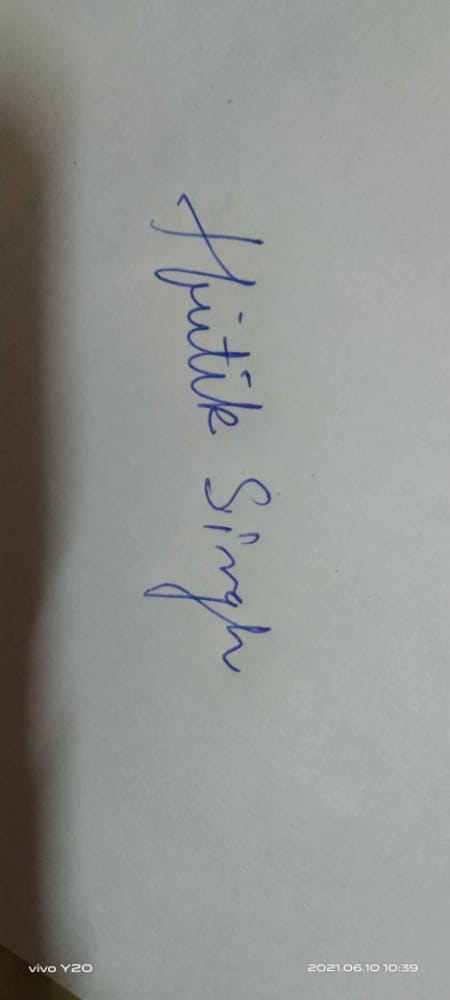 Hritik Singh
vivo Y20
2021.06.10 10:39